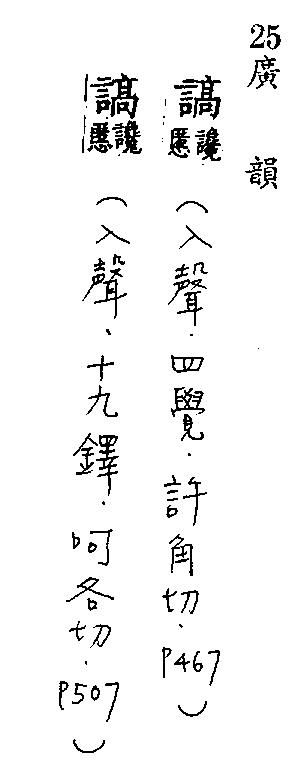 25廣韻
謞 讒慝（入聲．四覺．許角切．P467）
謞 讒慝（入聲．十九鐸．呵各切．P507）